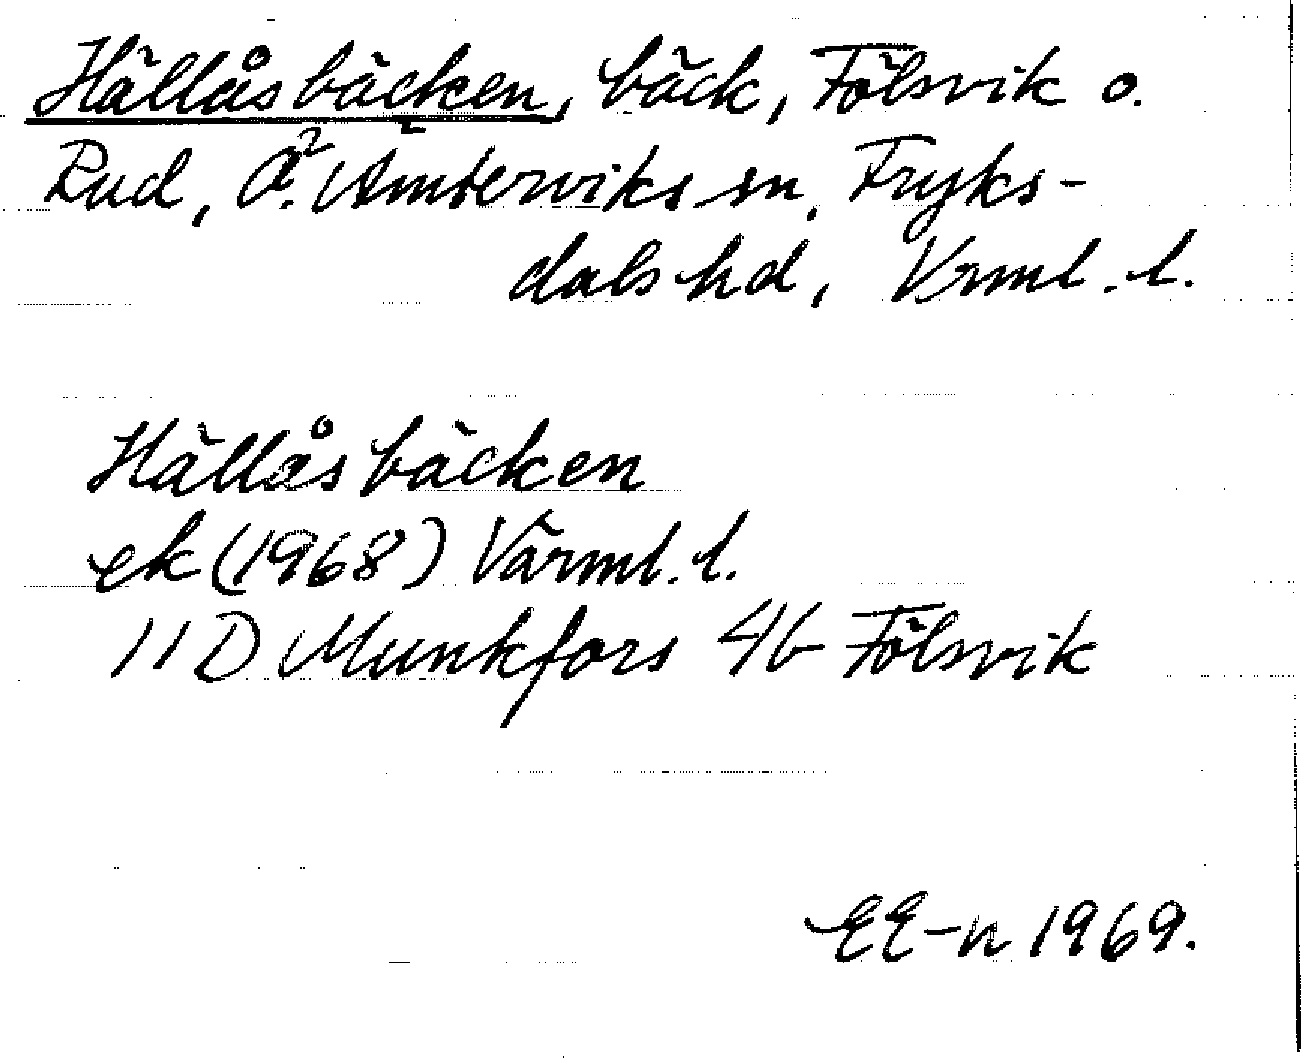 Hällåsbäcken, bäck, Fölsvik o.
Rud, Ö. Ämterviks sn, Fryks-
dals hd, Vrml. l.
Hällåsbäcken
ek (1968) Värml. l.
11D Munkfors 4b Fölsvik
EE-n 1969.